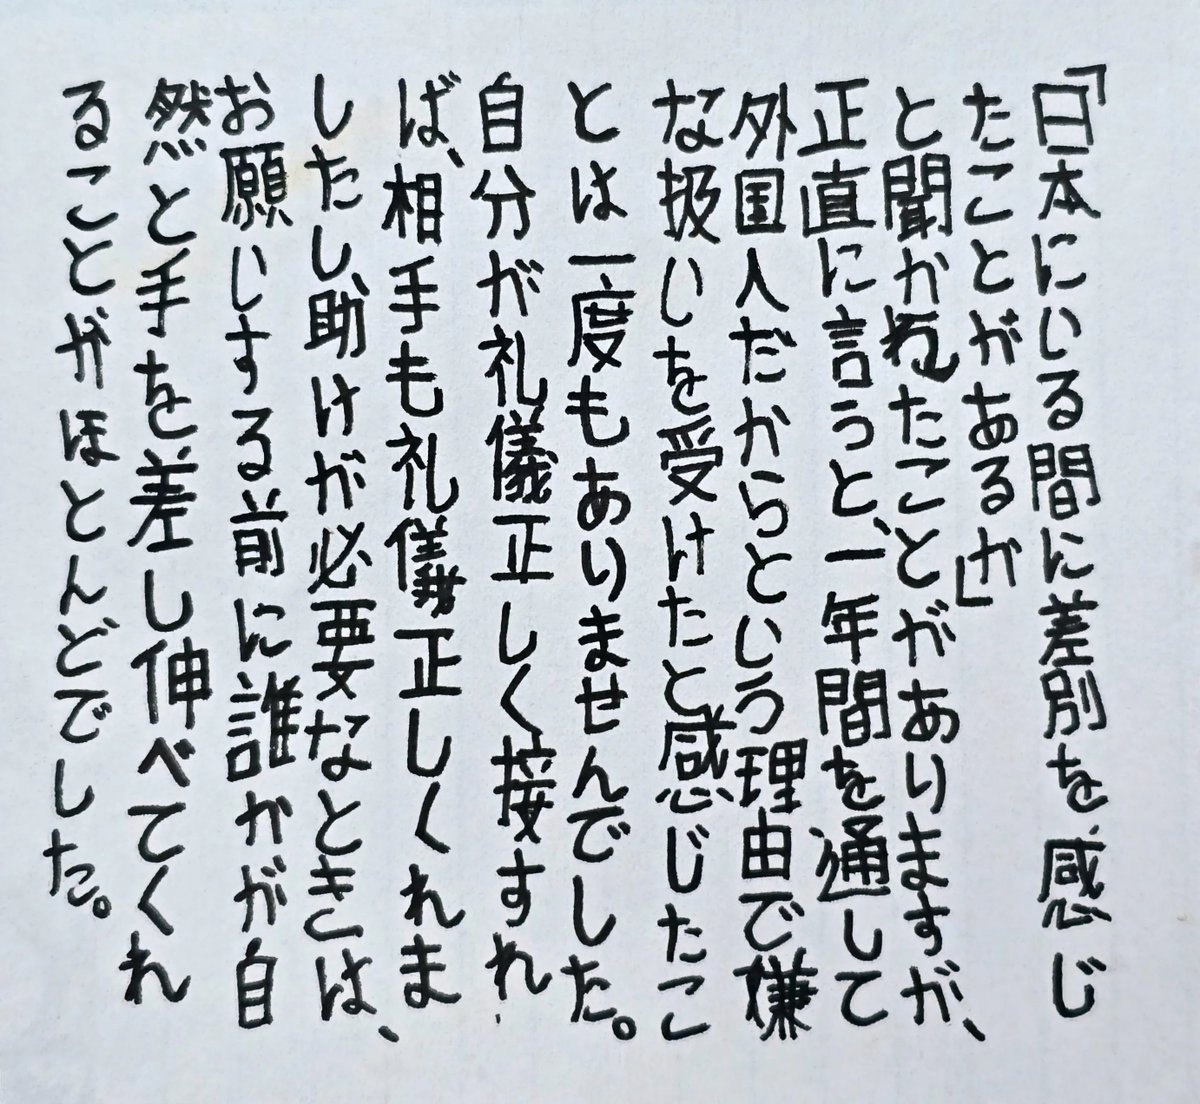 「日本にいる間に差別を感じ
たことがあるか」
と聞かれたことがありますが、
正直に言うと、一年間を通して
外国人だからという理由で嫌
な扱いを受けたと感じたこ
とは一度もありませんでした。
自分が礼儀正しく接すれ
ば、相手も礼儀正しくれま
したし、助けが必要なときは、
お願いする前に誰かが自
然と手を差し伸べてくれ
ることがほとんどでした。